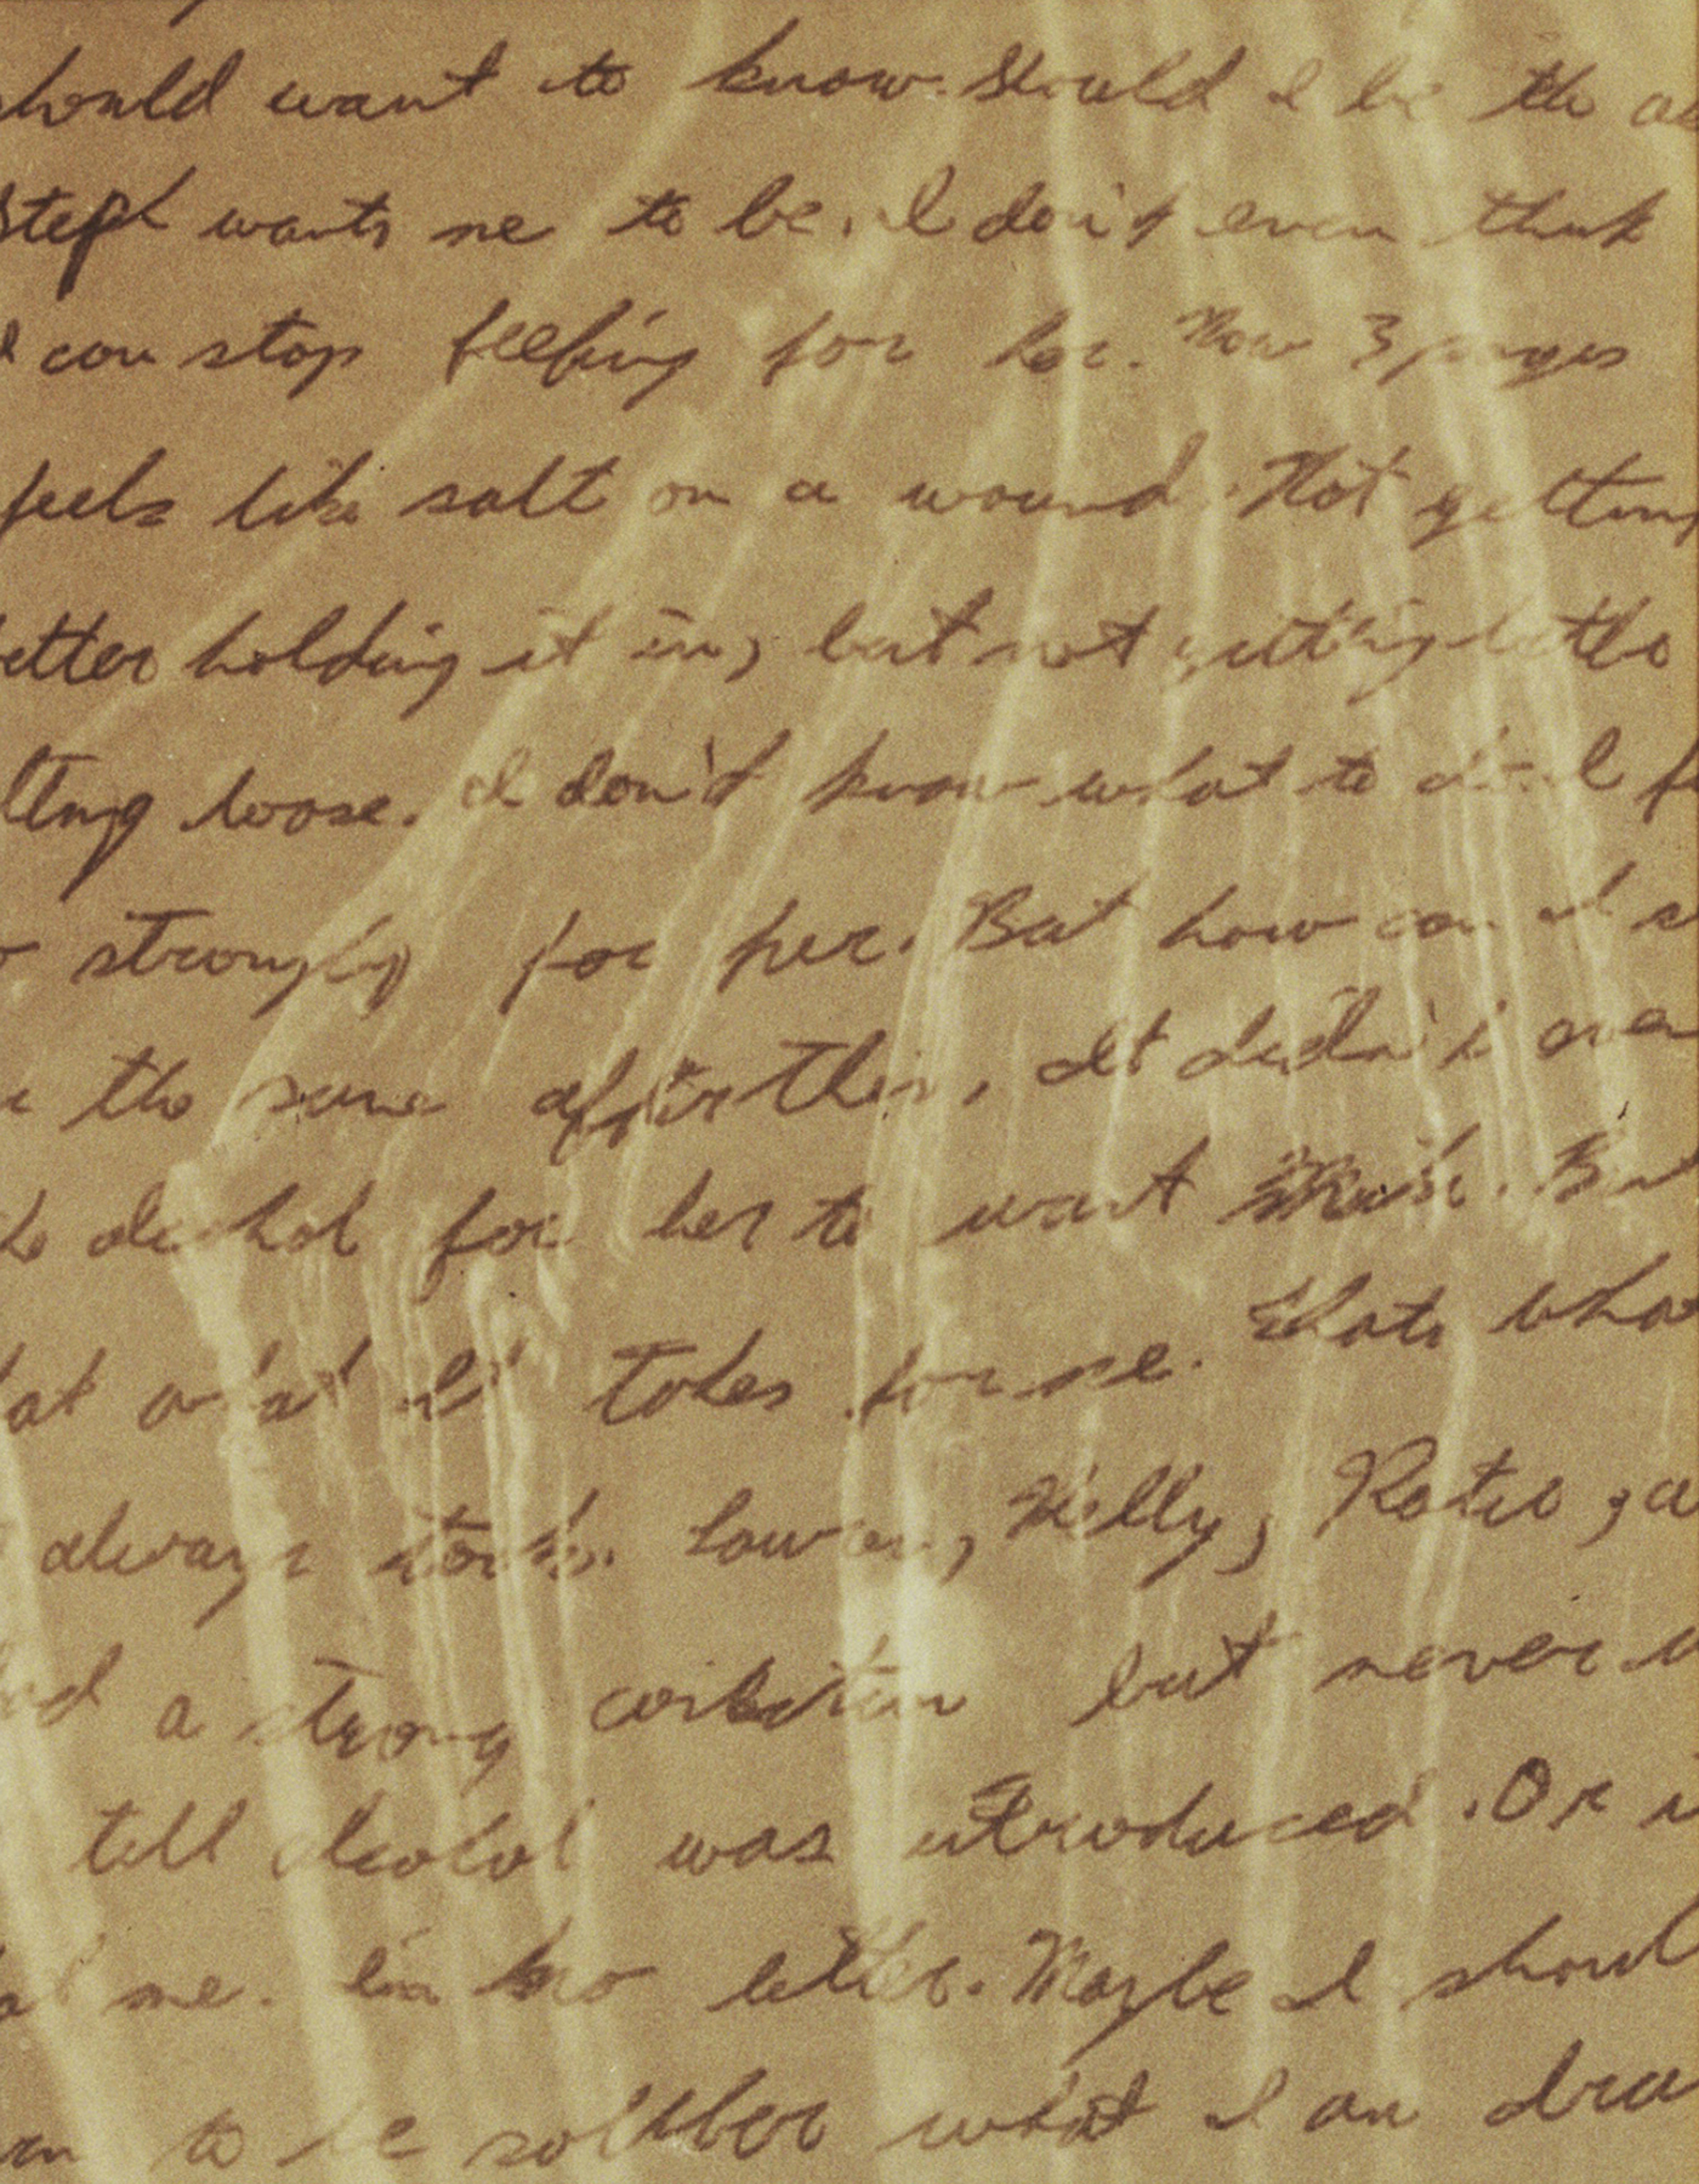 should want to know. Should I be the
Steph wants me to be. I don't even think
I can stop feeling for her. Now 3 pages
feels like salt on a wound. Not getting
better holding it in, but not getting bette
tting loose. I don't know what to do. I f
strongly for her. But how can I s
the same after this, It didn't even
alcohol for her to want this. But
at what it takes for me. Thats what
always took. Lauren, Kelly, Katie, a
a strong but never
till alcohol was introduced. Or
me. I'm no better. Maybe I shoul
to be what I am